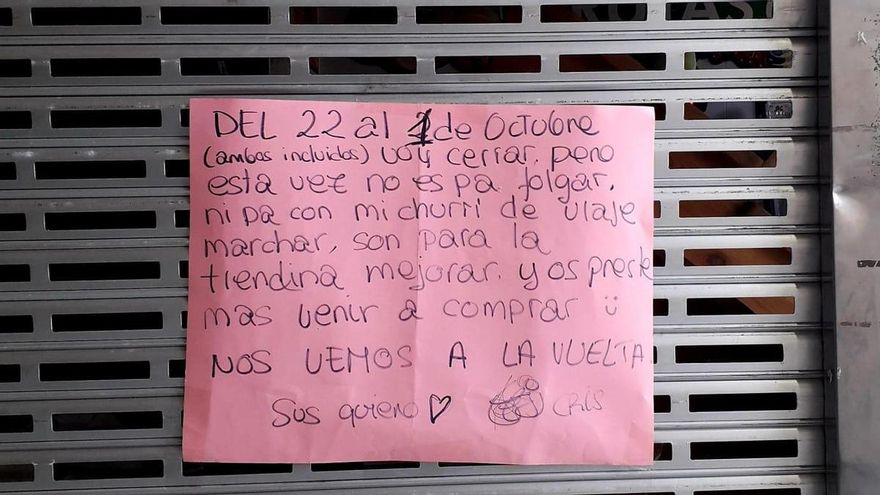 DEL 22 al 1 de Octubre
(ambos incluidos) voy cerrar. pero
esta vez no es pa folgar,
ni pa con mi churri de viaje
marchar, son para la
tiendina mejorar. y os preste
mas venir a comprar ü
NOS VEMOS A LA VUELTA
Sus quiero ♡ CRIS